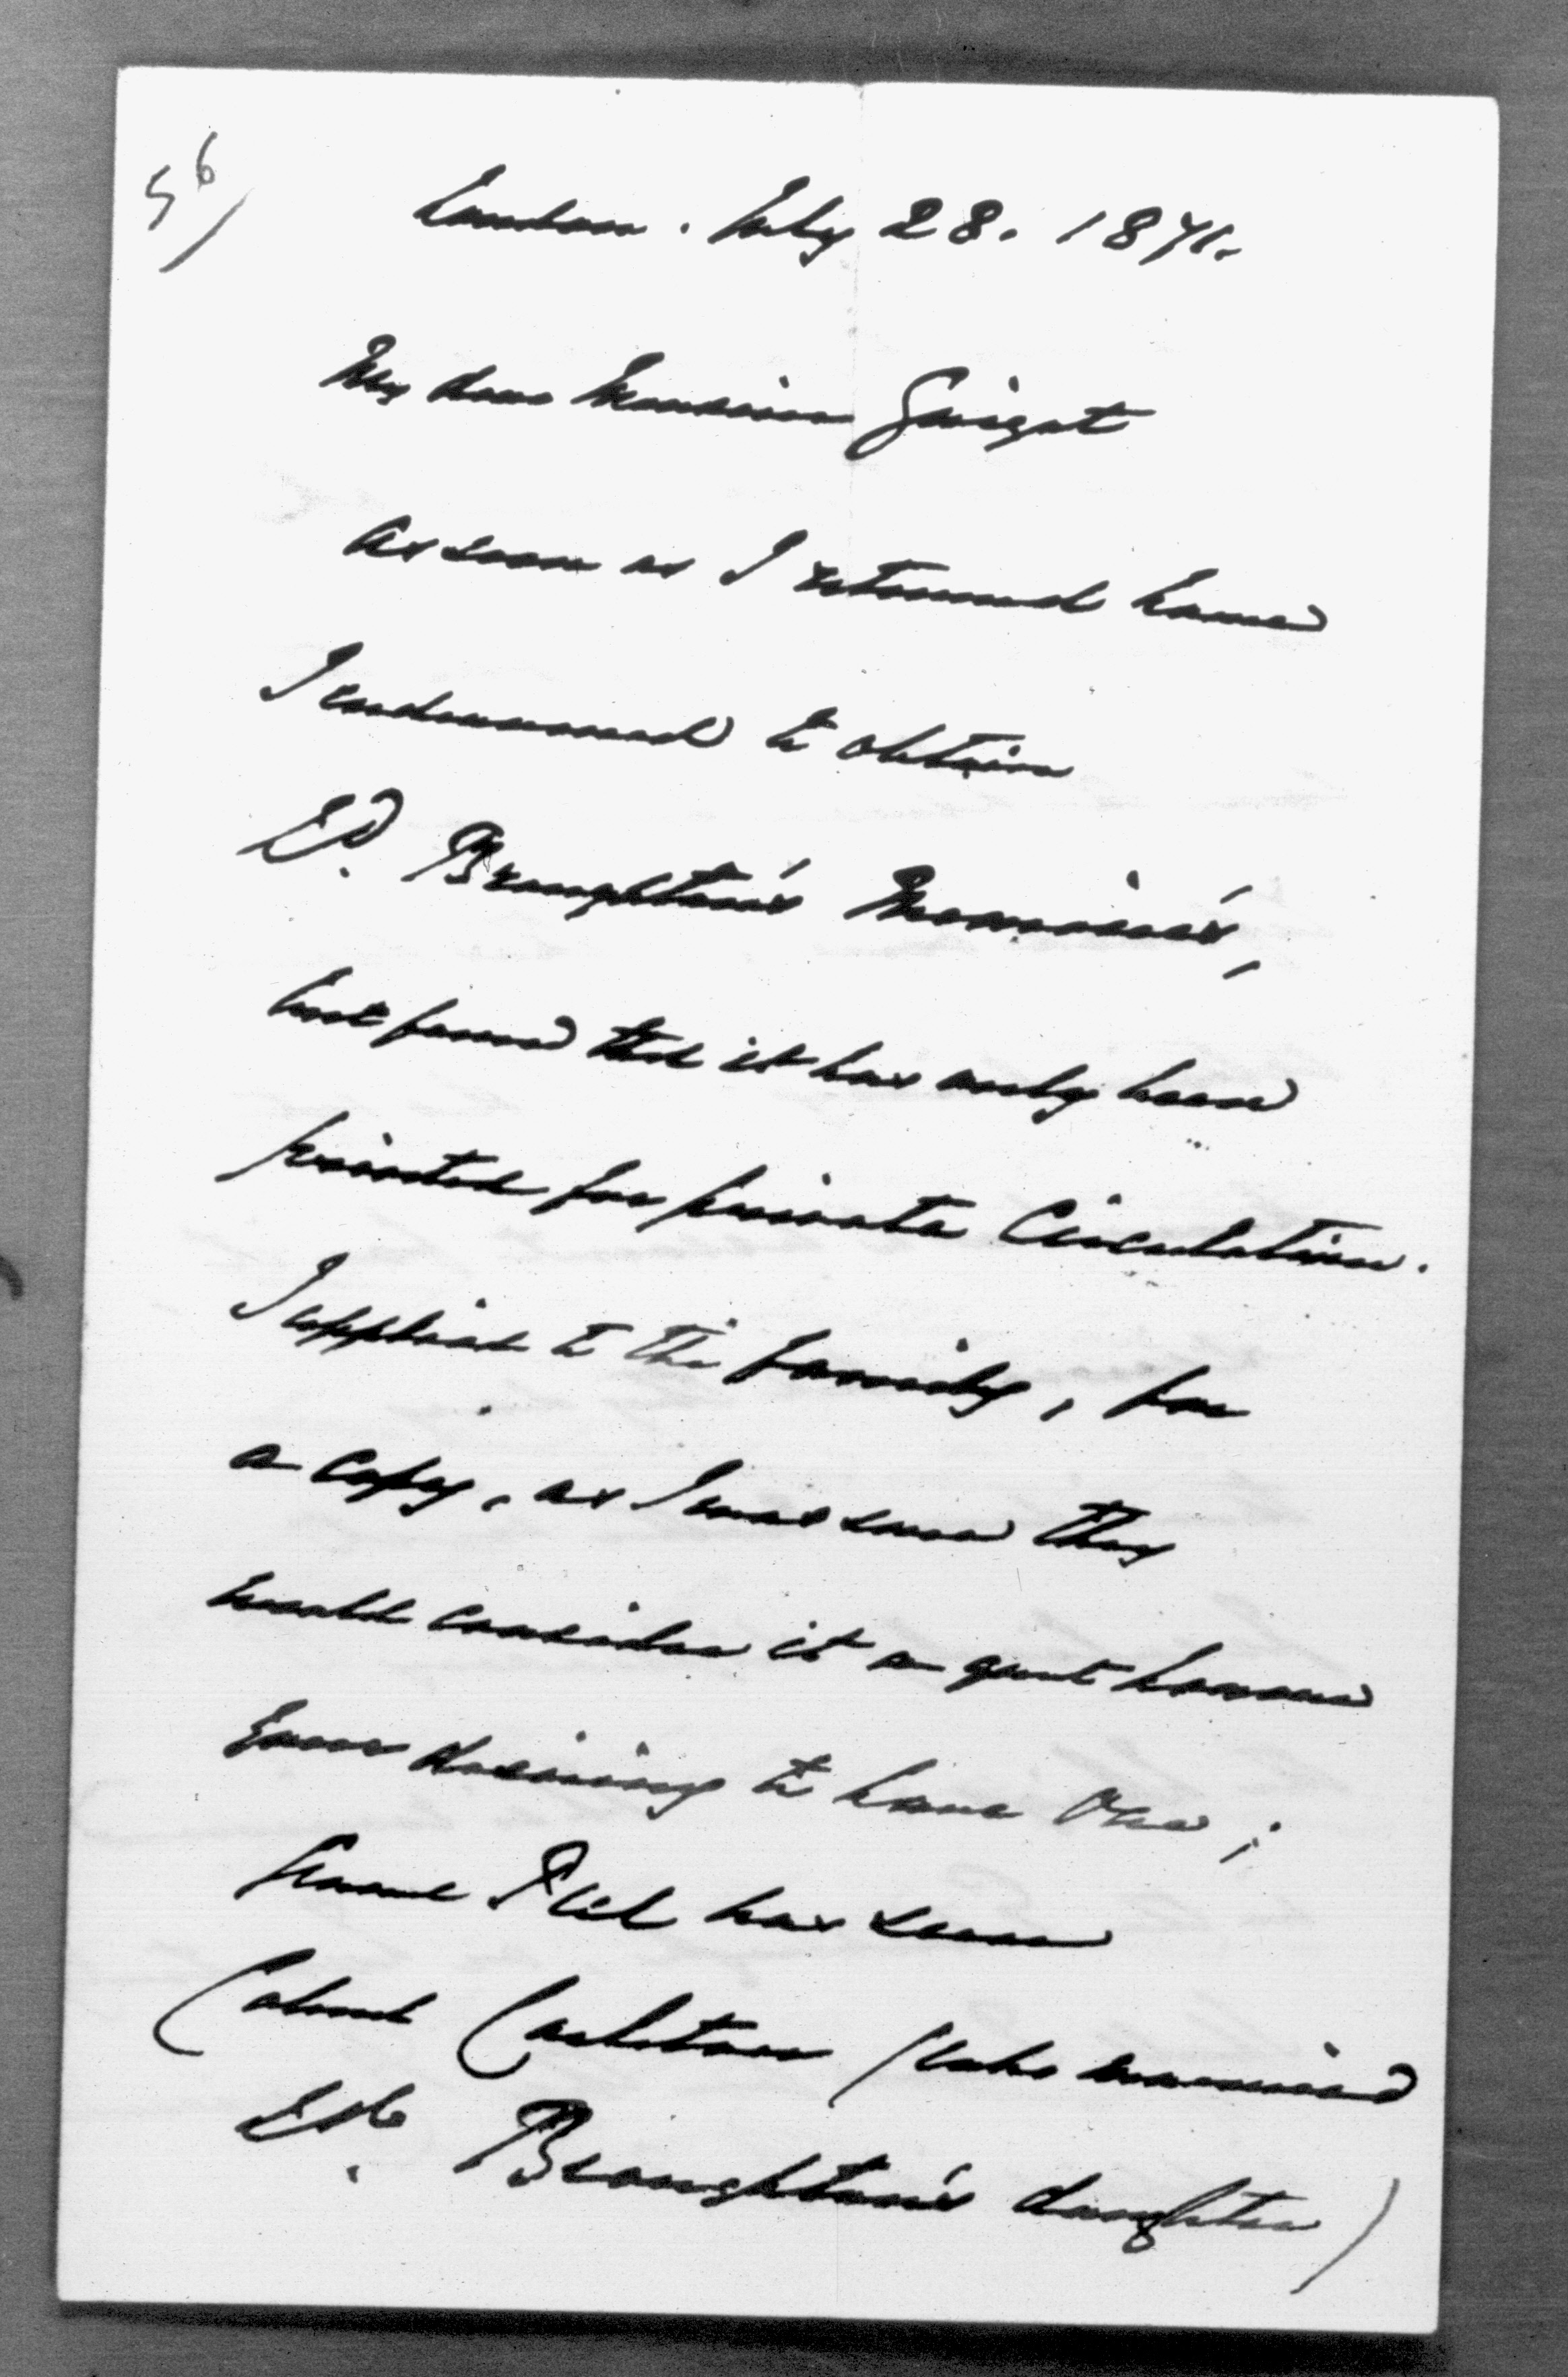 56/
London. July 28. 1871.
My dear Monsieur Guizot
As soon as I returned home
I endeavoured to obtain
Ld. Broughton's Memoires,
but found that it has only been
printed for private Circulation.
I applied to the family, for
a copy, as I was sure they
would consider it a great honour
your desiring to have one;
Peel has seen
Colonel Carleton (who married
Ld. Broughton's daughter)